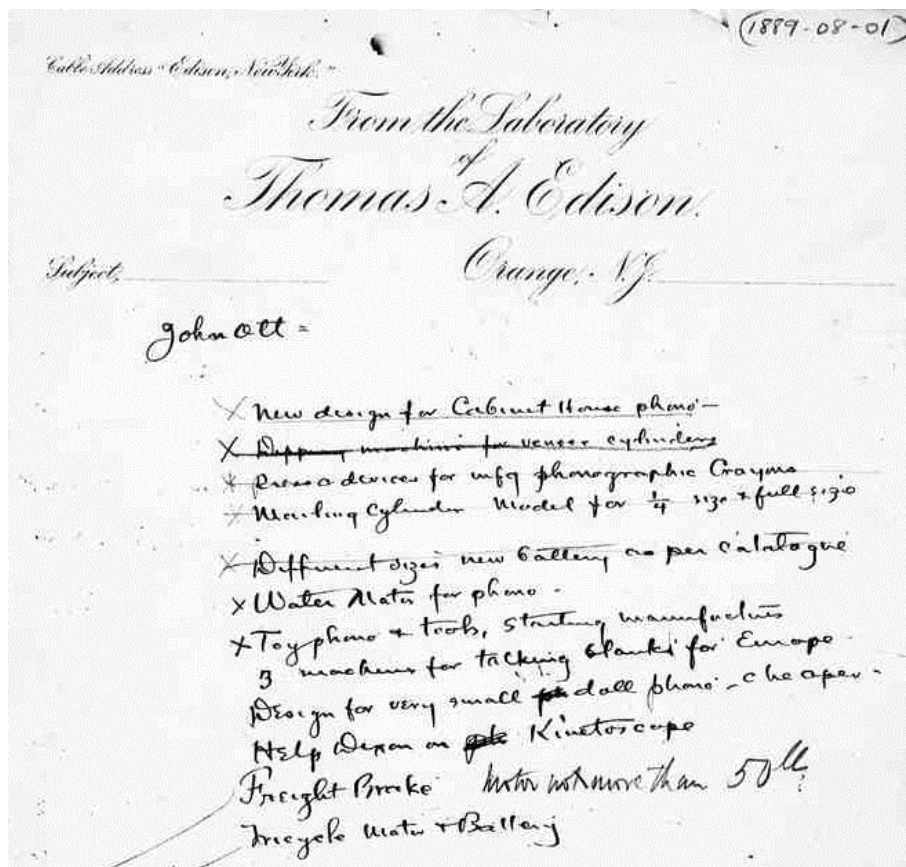 (1889-08-01)
Cable Address "Edison, New York."
From the Laboratory
of
Thomas A. Edison.
Subject, Orange, N.J.
John Ott =
X New design for Cabinet House phono-
X Dipping machine for veneer cylinders
X Press & devices for mfg phonographic Crayons
X Mailing Cylinder Model for 1/4 size & full size
X Different sizes new battery as per catalogue
X Water Motor for phono -
X Toy phono & tools, starting manufacture
3 machines for talking blanks for Europe -
Design for very small doll phono - cheaper -
Help Dixon on Kinetoscope
Freight Brake Motor not more than 50 lb
Tricycle Motor & Battery